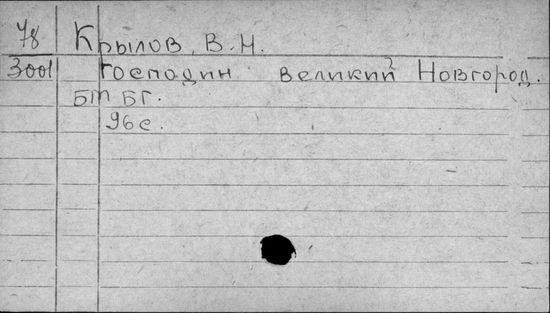 78 Крылов, В.Н.
3001 Господин великий Новгород.
БМ БГ.
96с.